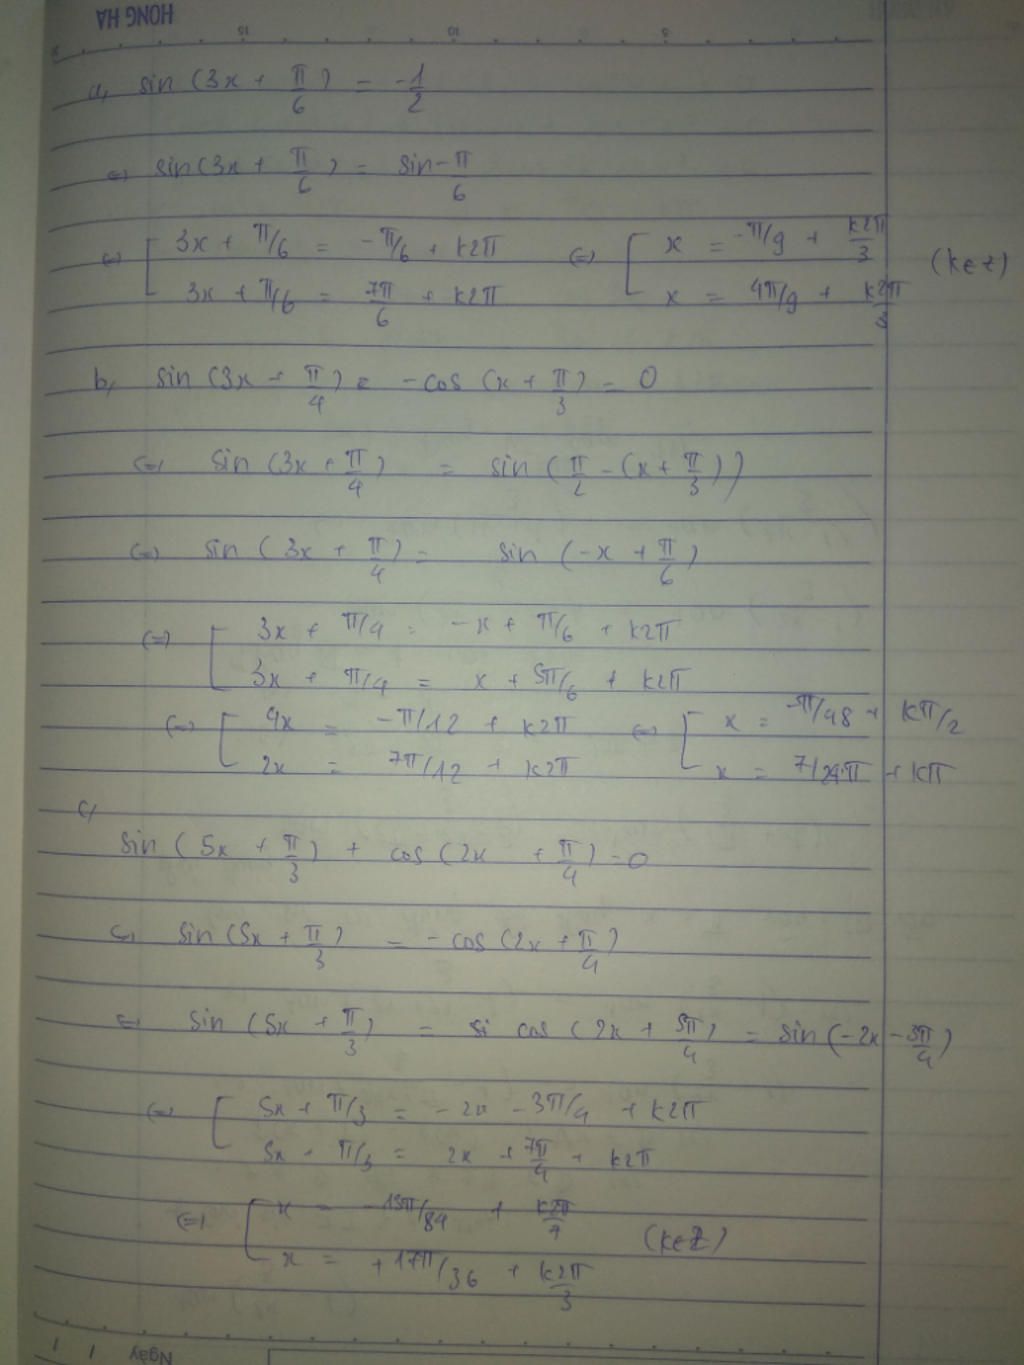 HONG HA
15 10 5
a, sin (3x + π/6) = -1/2
<=> sin(3x + π/6) = sin -π/6
<=> [ 3x + π/6 = -π/6 + k2π <=> [ x = -π/9 + k2π/3 (k∈z)
3x + π/6 = 7π/6 + k2π x = 4π/9 + k2π/3
b, sin (3x + π/4) = -cos (x + π/3) = 0
<=> sin (3x + π/4) = sin (π/2 - (x + π/3))
<=> sin (3x + π/4) = sin (-x + π/6)
<=> [ 3x + π/4 = -x + π/6 + k2π
3x + π/4 = x + 5π/6 + k2π
<=> [ 4x = -π/12 + k2π <=> [ x = -π/48 + kπ/2
2x = 7π/12 + k2π x = 7/24π + kπ
c/
sin (5x + π/3) + cos (2x + π/4) = 0
<=> sin (5x + π/3) = -cos (2x + π/4)
<=> sin (5x + π/3) = si cos (2x + 5π/4) = sin (-2x - 3π/4)
<=> [ 5x + π/3 = -2x - 3π/4 + k2π
5x + π/3 = 2x + 7π/4 + k2π
<=> [ x = -13π/84 + k2π/7 (k∈Z)
x = +17π/36 + k2π/3
Ngày / /